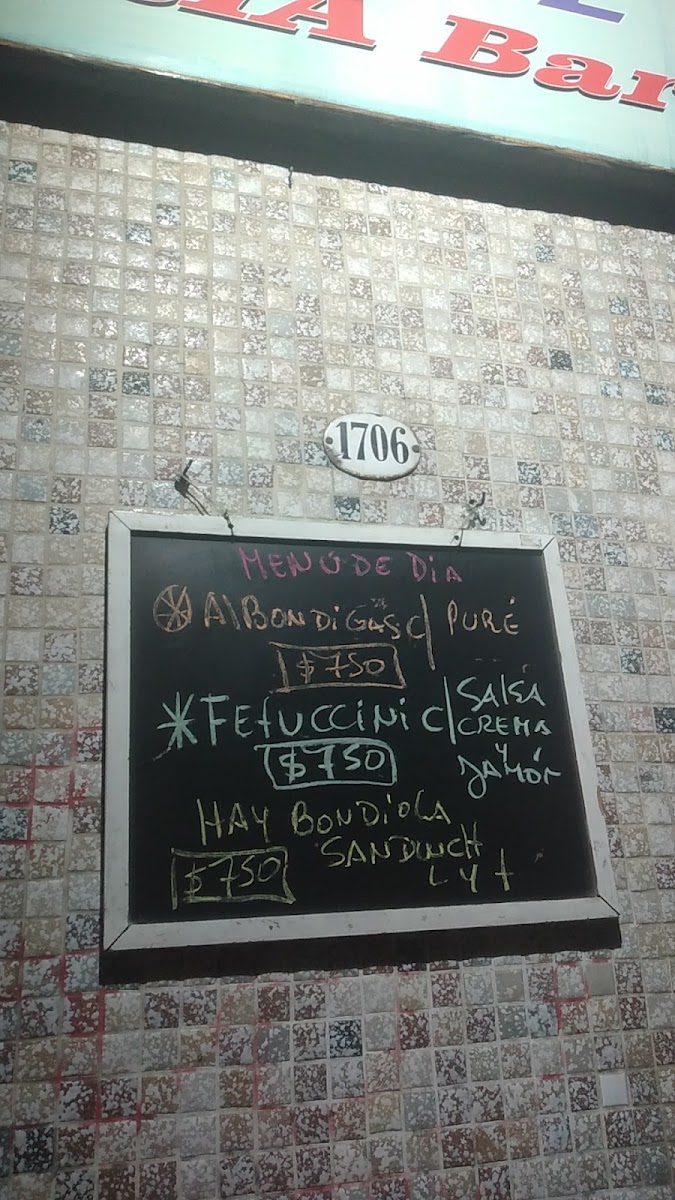 Bar
1706
MENÚ DE DIA
AlBONDiGAS C/ PURÉ
$750
FETUCCiNi C/ SALSA
CREMA
Y
JAMÓN
$750
HAY BONDiOLA
SANDWCH
L Y t
$750